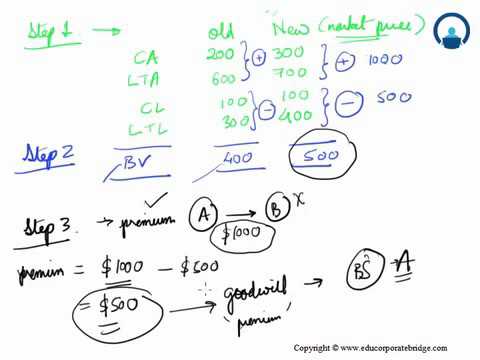 Step 1 → old New (market price)
CA 200 + 300 + 1000
LTA 600 700
CL 100 - 100 - 500
LTL 300 400
Step 2 BV 400 500
Step 3 → premium ✓ A → B x
$1000
premium = $1000 - $500
= $500 → goodwill → BS A
"premium"
Copyright © www.educorporatebridge.com